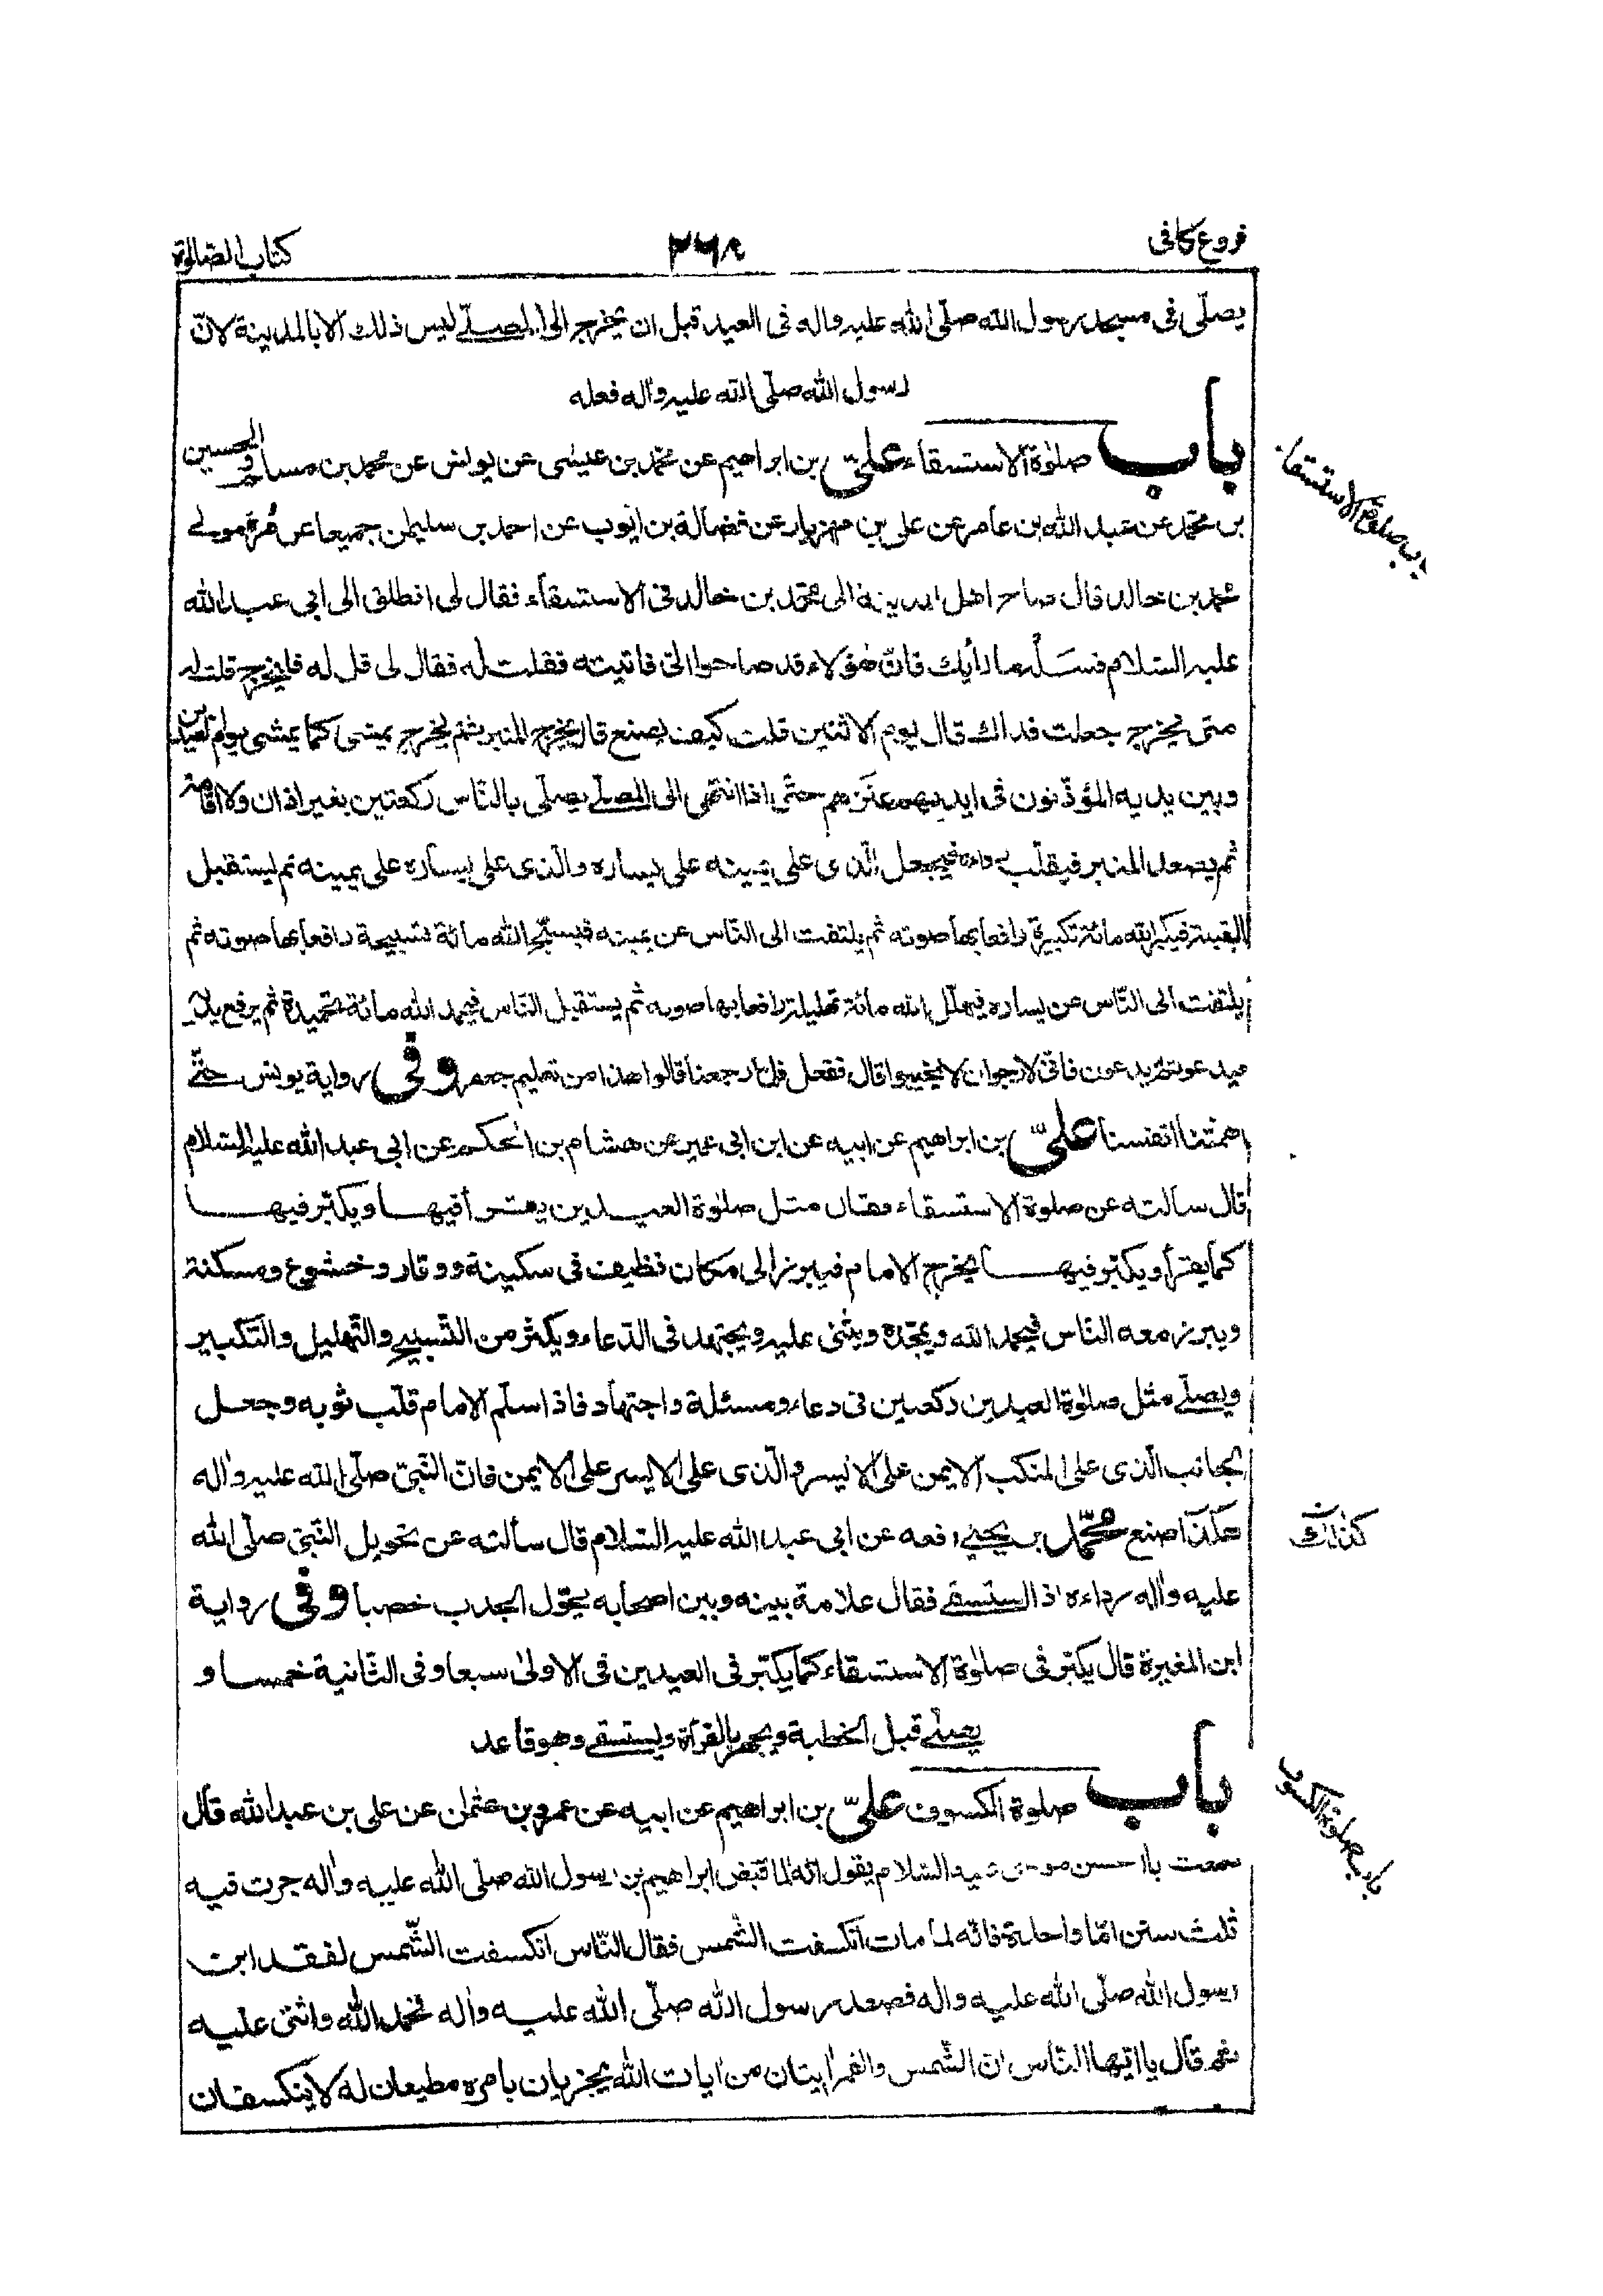 فروع كافى
٢٦٨
كتاب الصلوة
يصلّى فى مسجد رسول الله صلّى الله عليه واله فى العيد قبل ان يخرج الى المصلّے ليس ذلك الا بالمدينة لانّ
رسول الله صلّى الله عليه واله فعله
باب صلوة الاستسقاء علىّ بن ابراهيم عن محمّد بن عيسٰى عن يونس عن محمد بن مسلم والحسين
بن محمّد عن عبد الله بن عامر عن على بن مهزيار عن فضالة بن ايّوب عن احمد بن سليمٰن جميعا عن مُرّة مولے
محمد بن خالد قال صاح اهل المدينة الى محمّد بن خالد فى الاستسقاء فقال لى انطلق الى ابى عبد الله
عليه السّلام فسَلْه ما رأيك فانّ هؤلاء قد صاحوا الىّ فاتيته فقلت له فقال لى قل له فليخرج قلت له
متى يخرج جعلت فداك قال يوم الاثنين قلت كيف يصنع قال يخرج المنبر ثم يخرج يمشى كما يمشى يوم العيدين
وبين يديه المؤذّنون فى ايديهم عَنَزهم حتّى اذا انتهى الى المصلّے يصلّى بالنّاس ركعتين بغير اذان ولا اقامة
ثم يصعد المنبر فيقلّب رداءه فيجعل الّذى على يمينه على يساره والّذى على يساره على يمينه ثم يستقبل
القبلة فيكبّر الله مائة تكبيرة رافعا بها صوته ثم يلتفت الى النّاس عن يمينه فيسبّح الله مائة تسبيحة رافعا بها صوته ثم
يلتفت الى النّاس عن يساره فيهلّل الله مائة تهليلة رافعا بها صوته ثم يستقبل النّاس فيحمد الله مائة تحميدة ثم يرفع يديه
فيدعو ثم يدعون فانّى لارجو ان لا يخيبوا قال ففعل فلمّا رجعنا قالوا هذا من تعليم جعفر وفى رواية يونس حتّے
اهمّتنا انفسنا علىّ بن ابراهيم عن ابيه عن ابن ابى عمير عن هشام بن الحكم عن ابى عبد الله عليه السّلام
قال سالته عن صلوة الاستسقاء فقال مثل صلوة العيدين يقرأ فيها ويكبّر فيها
كما يقرأ ويكبّر فيها يخرج الامام فيبرز الى مكان نظيف فى سكينة ووقار وخشوع ومسكنة
ويبرز معه النّاس فيحمد الله ويمجّده ويثنى عليه ويجتهد فى الدّعاء ويكثر من التّسبيح والتّهليل والتّكبير
ويصلّے مثل صلوة العيدين ركعتين فى دعاء ومسئلة واجتهاد فاذا سلّم الامام قلّب ثوبه وجعل
الجانب الّذى على المنكب الايمن على الايسر والّذى على الايسر على الايمن فانّ النّبىّ صلّى الله عليه واله
هكذا صنع محمّد بن يحيى رفعه عن ابى عبد الله عليه السّلام قال سألته عن تحويل النّبىّ صلّى الله
عليه واله رداءه اذا استسقے فقال علامة بينه وبين اصحابه يحوّل الجدب خصبا وفى رواية
ابن المغيرة قال يكبّر فى صلوة الاستسقاء كما يكبّر فى العيدين فى الاولىٰ سبعا وفى الثّانية خمسا و
يصلّے قبل الخطبة ويجهر بالقرأة ويستسقے وهو قاعد
باب صلوة الكسوف علىّ بن ابراهيم عن ابيه عن عمرو بن عثمٰن عن على بن عبد الله قال
سمعت ابا الحسن موسى عليه السّلام يقول انّه لمّا قبض ابراهيم بن رسول الله صلّى الله عليه واله جرت فيه
ثلث سنن امّا واحدة فانّه لمّا مات انكسفت الشّمس فقال النّاس انكسفت الشّمس لفقد ابن
رسول الله صلّى الله عليه واله فصعد رسول الله صلّى الله عليه واله المنبر فحمد الله واثنى عليه
ثم قال يا ايّها النّاس انّ الشّمس والقمر ايتان من ايات الله يجريان بامره مطيعان له لا ينكسفان
باب صلوة الاستسقاء
كذلك
باب صلوة الكسوف